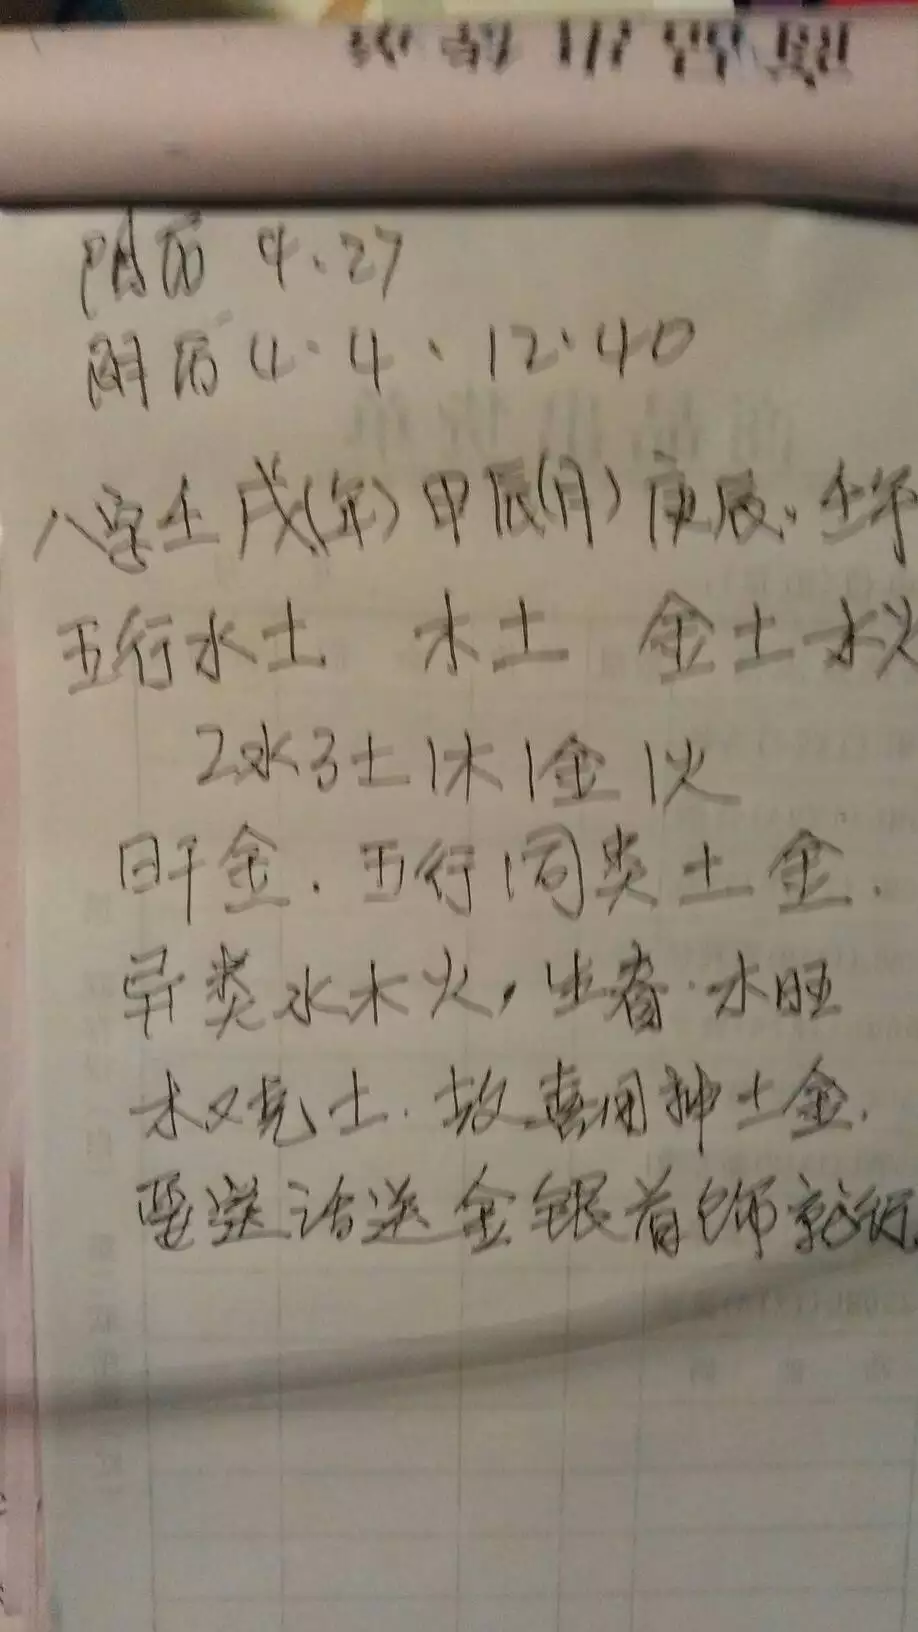 阳历 4.27
阴历 4.4.12.40
八字壬戌(年)甲辰(月)庚辰.壬午
五行水土 木土 金土水火
2水3土1木1金1火
日干金.五行同类土金.
异类水木火,生春.木旺
木又克土.故喜用神土金.
要送话送金银首饰就行